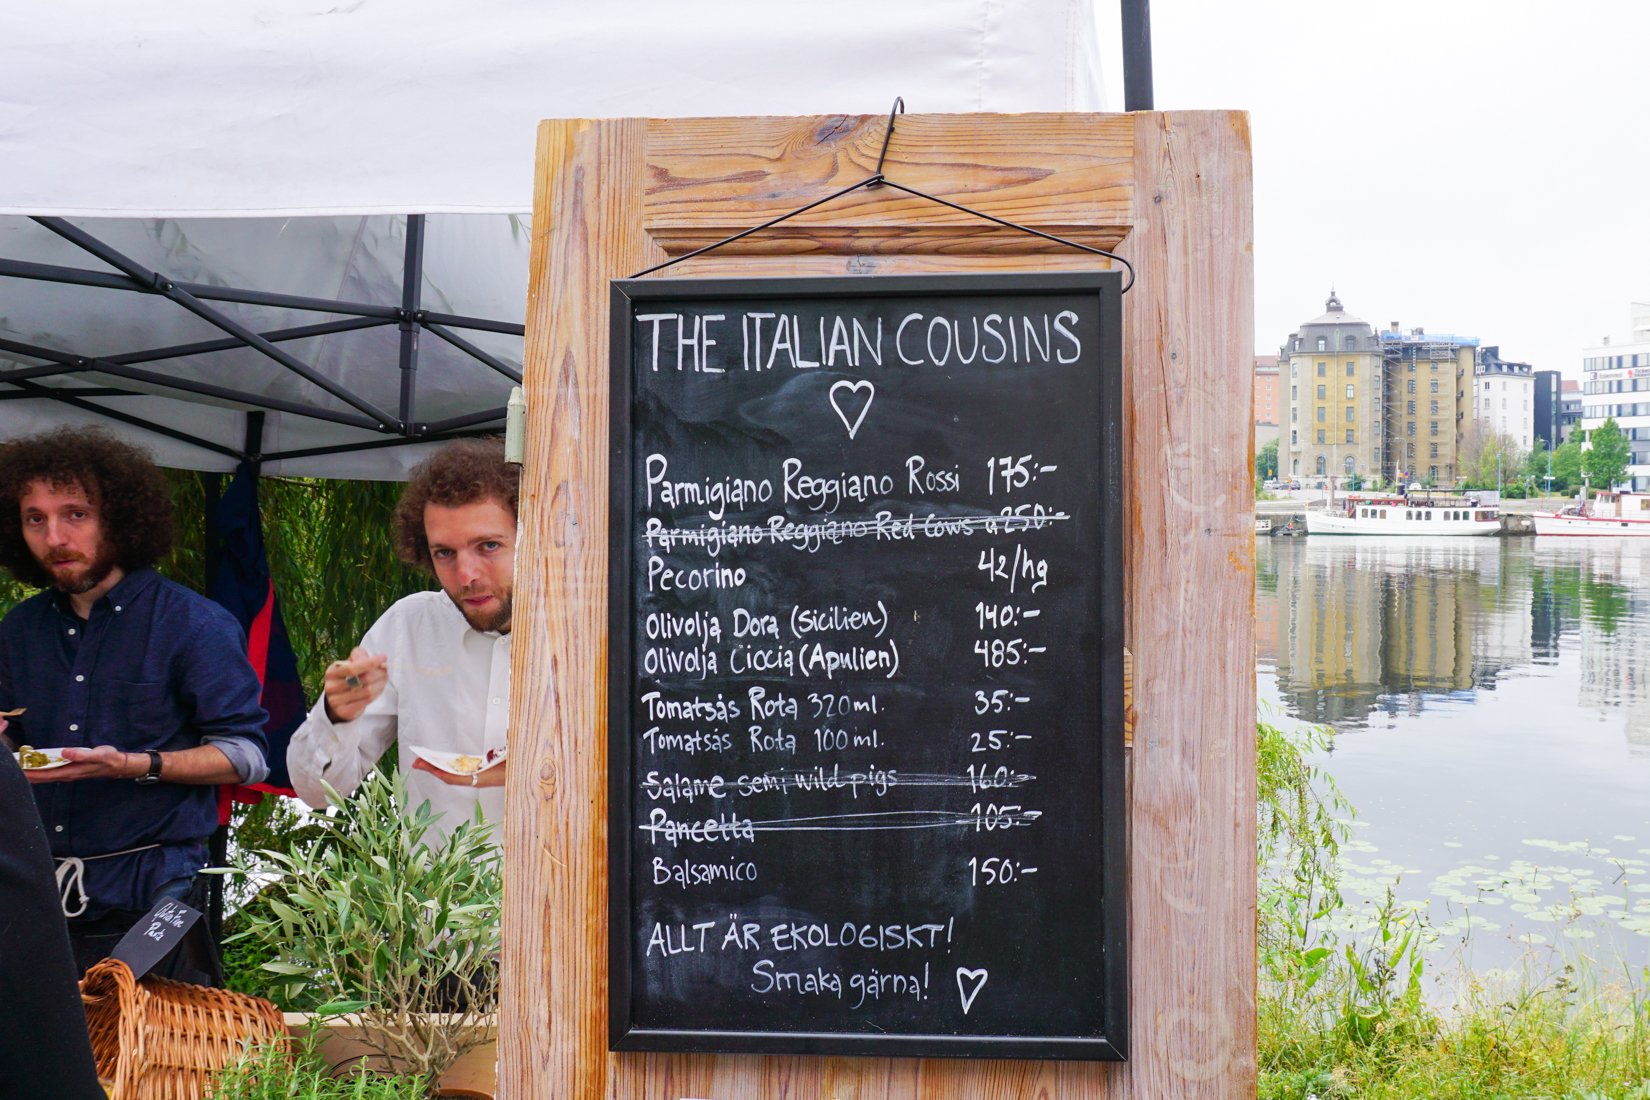 THE ITALIAN COUSINS
Parmigiano Reggiano Rossi 175:-
Parmigiano Reggiano Red Cows a 250:-
Pecorino 42/hg
Olivolja Dora (Sicilien) 140:-
Olivolja Ciccia (Apulien) 485:-
Tomatsås Rota 320 ml. 35:-
Tomatsås Rota 100 ml. 25:-
Salame semi wild pigs 160:-
Pancetta 105:-
Balsamico 150:-
ALLT ÄR EKOLOGISKT!
Smaka gärna!
Pasta